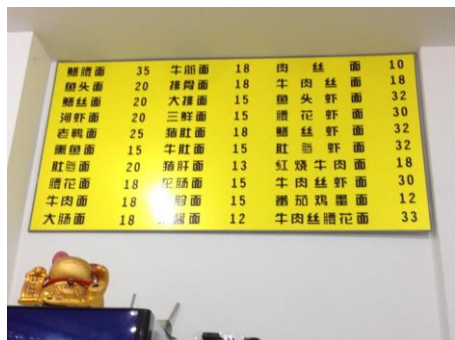 鳝腰面 35 牛筋面 18 肉丝面 10
鱼头面 20 排骨面 18 牛肉丝面 18
鳝丝面 20 大排面 15 鱼头虾面 32
河虾面 20 三鲜面 15 腰花虾面 30
老鸭面 25 猪肚面 18 鳝丝虾面 32
黑鱼面 15 牛肚面 15 肚当虾面 32
肚当面 20 猪肝面 13 红烧牛肉面 18
腰花面 18 大肠面 15 牛肉丝虾面 30
牛肉面 18 面 15 番茄鸡蛋面 12
大肠面 18 酱面 12 牛肉丝腰花面 33